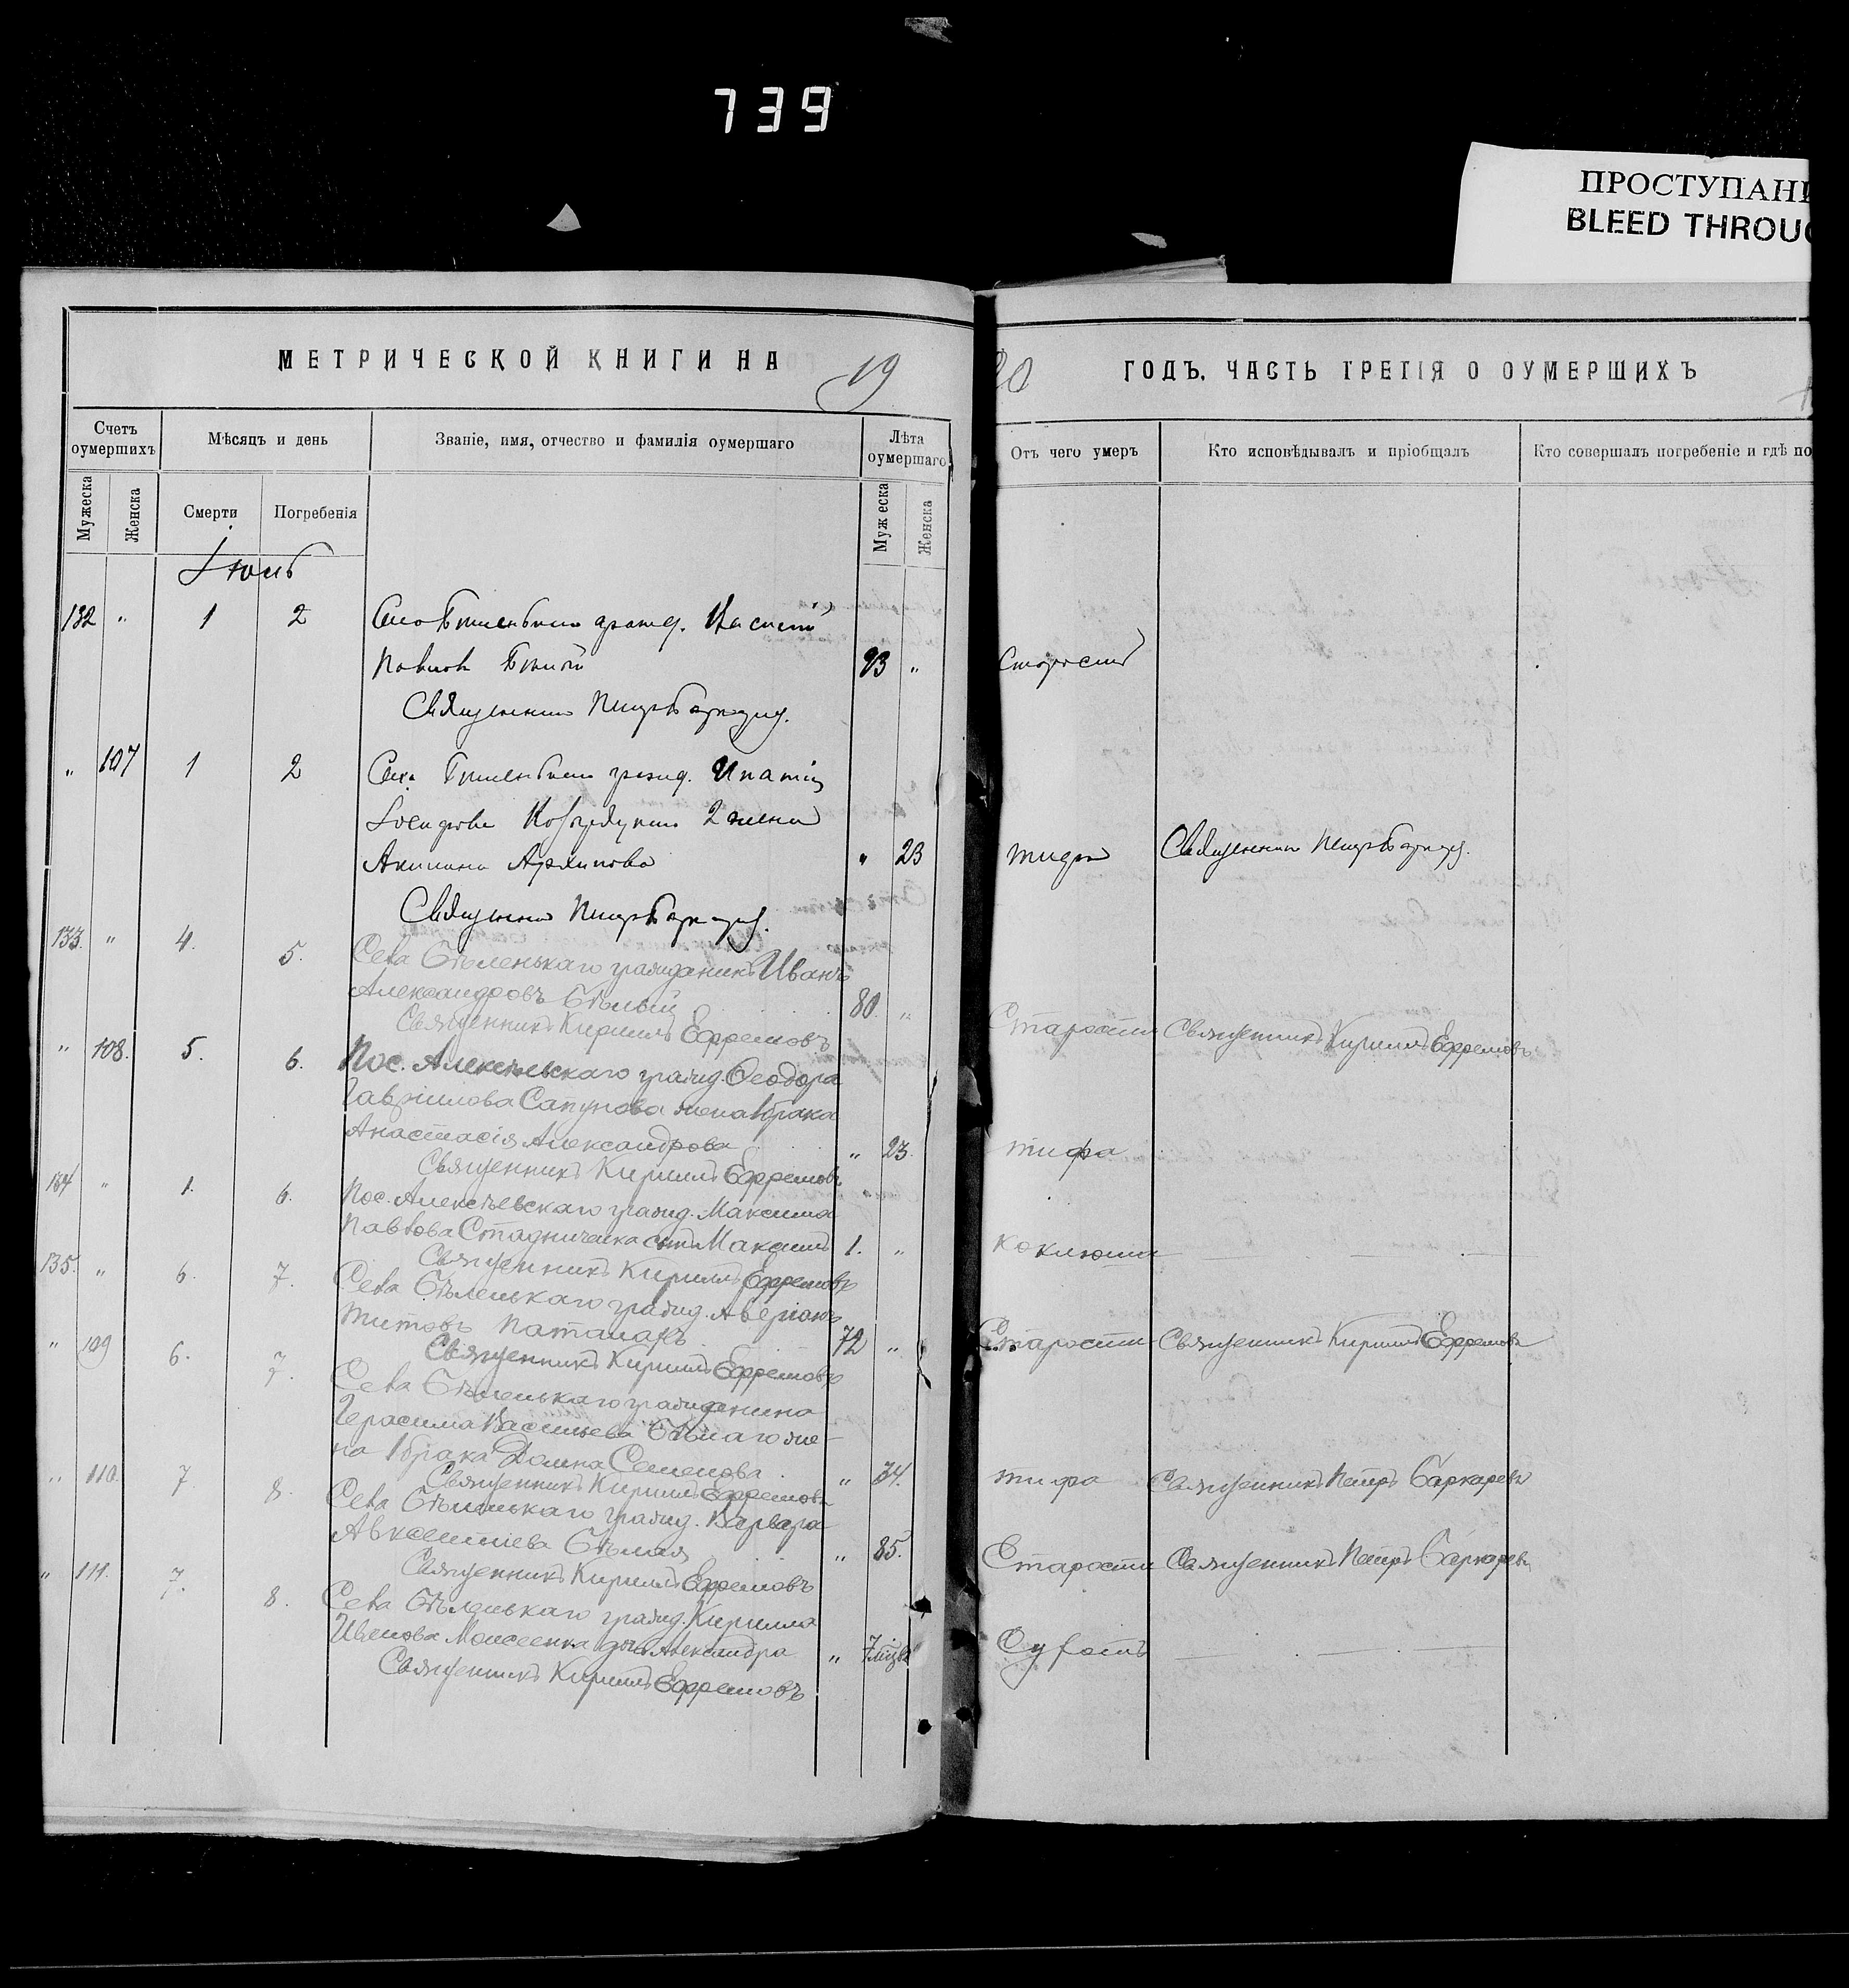 739
ПРОСТУПАНИ
BLEED THROUG
МЕТРИЧЕСКОЙ КНИГИ НА 19
20 ГОДЪ. ЧАСТЬ ТРЕТІЯ О ОУМЕРШИХЪ
Счетъ оумершихъ
Мѣсяцъ и день
Званіе, имя, отчество и фамилія оумершаго
Лѣта оумершаго
Отъ чего умеръ
Кто исповѣдывалъ и пріобщалъ
Кто совершалъ погребеніе и гдѣ по
Мужеска
Женска
Смерти
Погребенія
Муж еска
Женска
132 " 1 2
Павловъ Бѣлый 93 " Старости
Священникъ Петръ
" 107 1 2 гражд. Ипатія
2 жена
Акилина Архипова " 23 тифа Священникъ Петръ
Священникъ Петръ
133. " 4. 5. Села Бѣленькаго гражданинъ Иванъ
Александровъ Бѣлый 80. " Старости Священникъ Кириллъ Ефремовъ
Священникъ Кириллъ Ефремовъ
" 108. 5. 6. Пос. Алексѣевскаго гражд. Ѳеодора
Гавриилова Сапунова жена 1 брака
Анастасія Александрова " 23. тифа
Священникъ Кириллъ Ефремовъ
134 " 1. 6. Пос. Алексѣевскаго гражд. Максима
Павлова Стадниченка сынъ Максимъ 1. " коклюша
Священникъ Кириллъ Ефремовъ
135. " 6. 7. Села Бѣленькаго гражд. Аверіанъ
Титовъ Паталахъ 72 " Старости Священникъ Кириллъ Ефремовъ
Священникъ Кириллъ Ефремовъ
" 109 6. 7. Села Бѣленькаго гражданина
Герасима Васильева Бѣлаго же-
на 1 брака Домна Семенова " 34. тифа Священникъ Петръ
Священникъ Кириллъ Ефремовъ
" 110. 7. 8. Села Бѣленькаго гражд. Варвара
Авксентіева Бѣлая " 85. Старости Священникъ Петръ
Священникъ Кириллъ Ефремовъ
" 111. 7. 8. Села Бѣленькаго гражд. Кирилла
Иванова Моисеенка дочь Александра " 7 мцвъ
Священникъ Кириллъ Ефремовъ